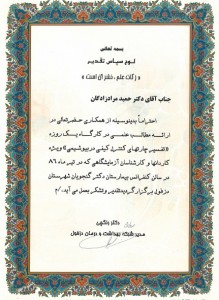 بسمه تعالی
لوح سپاس تقدیر
« زکات علم ، نشر آن است »
جناب آقای دکتر حمید مرادزادگان
احتراماً بدینوسیله از همکاری حضرتعالی در
ارائه مطالب علمی در کارگاه یک روزه
«تفسیر چارتهای کنترل کیفی در بیوشیمی» ویژه
کاردانها و کارشناسان آزمایشگاهی که در تیر ماه ۸۶
در سالن کنفرانس بیمارستان دکتر گنجویان شهرستان
دزفول برگزار گردید تقدیر وتشکر بعمل می آید./م
دکتر
مدیر شبکه بهداشت و درمان دزفول